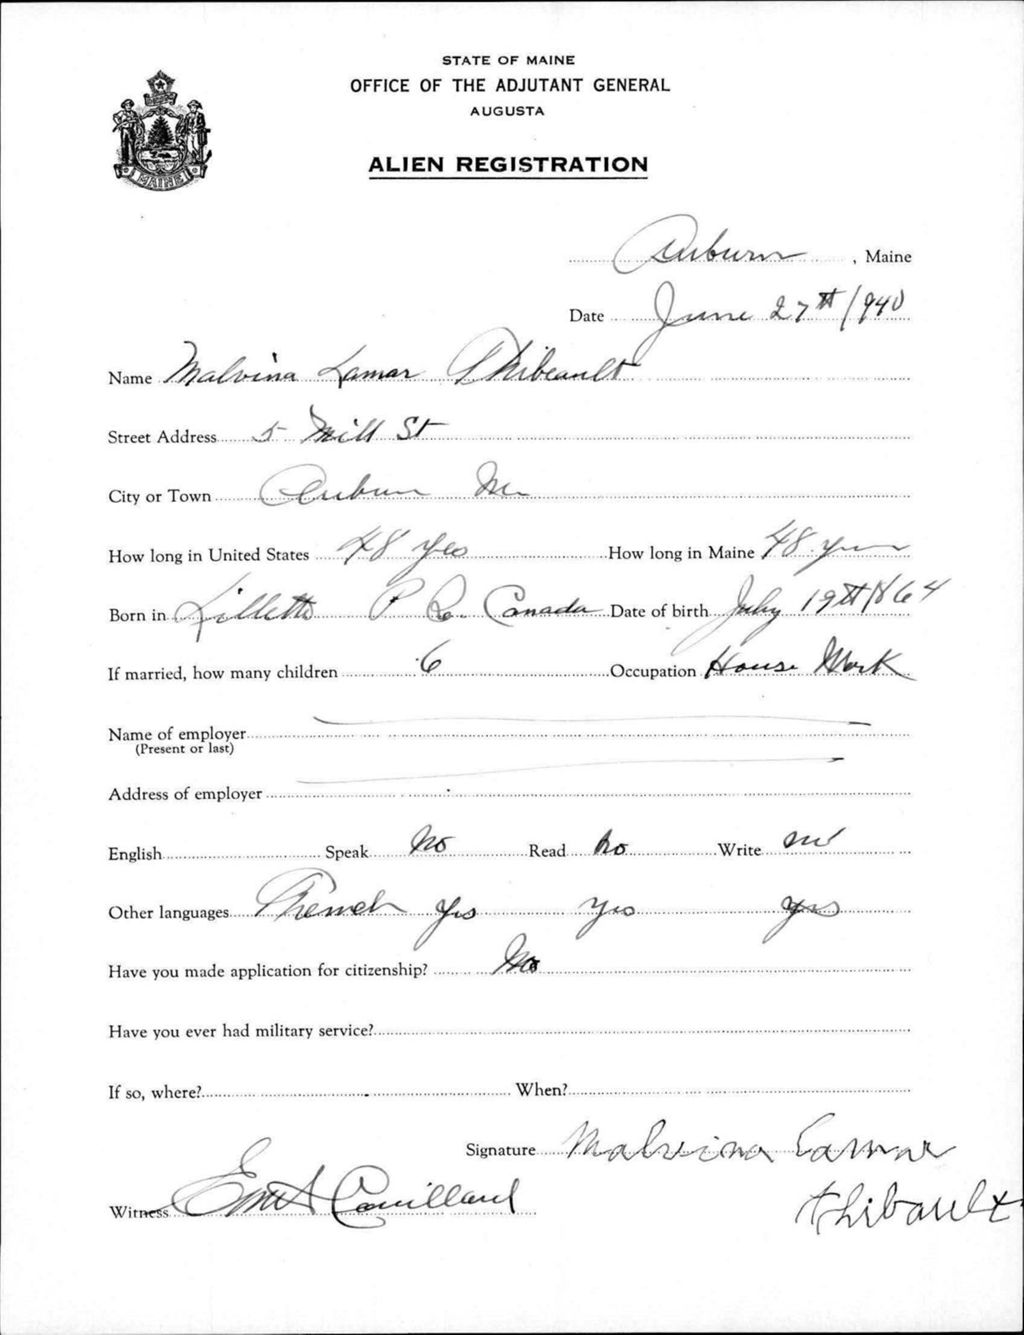 STATE OF MAINE
OFFICE OF THE ADJUTANT GENERAL
AUGUSTA
MAINE
ALIEN REGISTRATION
Auburn, Maine
Date June 27th 1940
Name Malvina Lamar Thibeault
Street Address 5 Mill St
City or Town Auburn Me
How long in United States 48 yes How long in Maine 48 yrs
Born in P Q. Canada Date of birth July 19th 1864
If married, how many children 6 Occupation House Work
Name of employer
(Present or last)
Address of employer
English Speak No Read No Write no
Other languages French yes yes yes
Have you made application for citizenship? No
Have you ever had military service?
If so, where? When?
Signature Malvina Lamar
Thibault
Witness Couillard